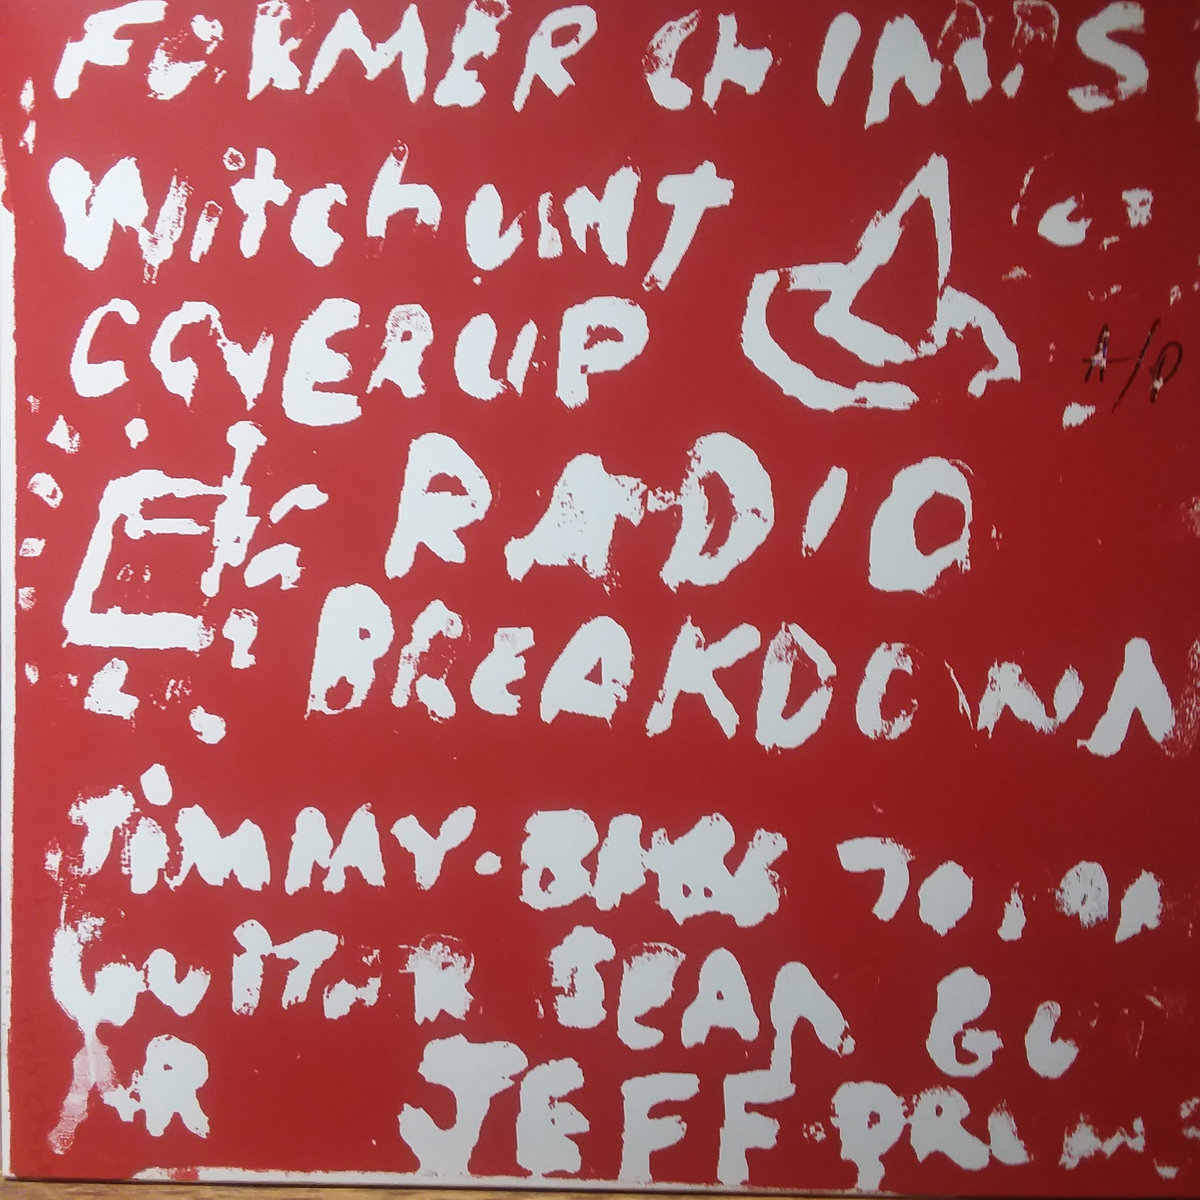 FORMER CHIMPS
WitcHUNT
COVERUP
A/D
RADIO
BREAKDOWN
TiMMY. BASS
GUITAR SEAN
JEFF